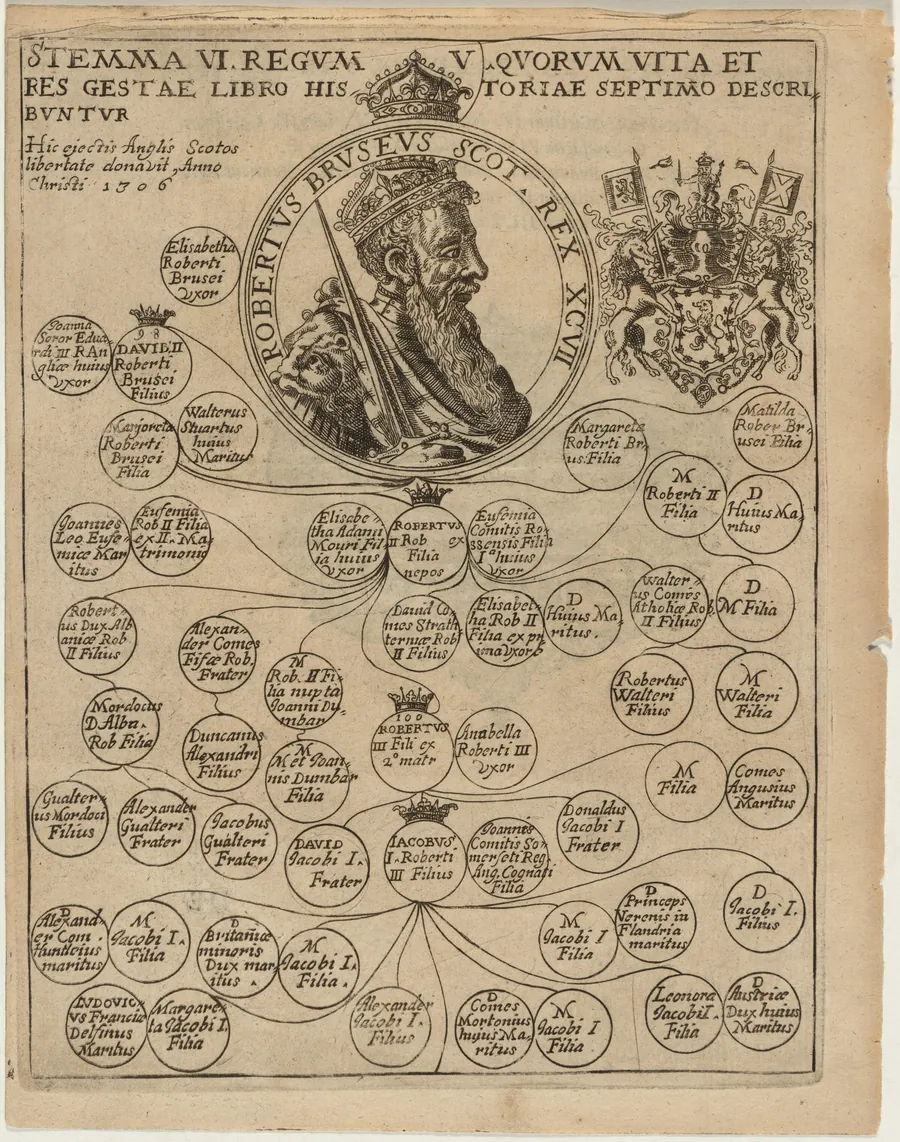 STEMMA VI. REGVM V .QVORVM VITA ET
RES GESTAE LIBRO HIS TORIAE SEPTIMO DESCRI
BVNTVR
Hic ejectis Anglis Scotos
libertate donavit, Anno
Christi 1306
ROBERTVS BRVSEVS SCOT. REX XCVII
Elisabetha
Roberti
Brusei
Vxor
Joanna
Soror Edua
rdi III R An
gliæ huius
vxor
98
DAVID. II
Roberti
Brusei
Filius
Marjoreta
Roberti
Brusei
Filia
Walterus
Stuartus
huius
Maritus
Margareta
Roberti Br
us: Filia
Matilda
Rober Br
usei Filia
M
Roberti II
Filia
D
Huius Ma
ritus
Joannes
Leo Eufe
miæ Mar
itus
Eufemia
Rob II Filia
ex II. Ma
trimonio
Elisabe
tha Adami
Mouri Fil
ia huius
vxor
ROBERTVS
II Rob ex
Filia
nepos
Eufemia
Comitis Ro
ssensis Filia
Iª huius
vxor
Robert
us Dux Alb
aniæ Rob
II Filius
Alexan
der Comes
Fifæ Rob.
Frater
M
Rob. II Fi
lia nupta
Joanni Du
mbar
David Co
mes Strath
terniæ Rob
II Filius
Elisabet
ha Rob II
Filia ex pr
ima vxore
D
Huius Ma
ritus.
Walter
us Comes
Atholiæ Rob
II Filius
D
M Filia
Mordocus
D. Alba.
Rob Filia
Duncanus
Alexandri
Filius
M
M et Joan
nis Dumbar
Filia
100
ROBERTVS
III Fili ex
2º matr
Anabella
Roberti III
vxor
Robertus
Walteri
Filius
M
Walteri
Filia
M
Filia
Comes
Angusius
Maritus
Gualter
us Mordoci
Filius
Alexander
Gualteri
Frater
Jacobus
Gualteri
Frater
DAVID
Jacobi I.
Frater
IACOBVS
I. Roberti
III Filius
Joannis
Comitis So
merseti Reg
Ang. Cognati
Filia
Donaldus
Jacobi I
Frater
D
Alexand
er Com.
Huntleius
maritus
M
Jacobi I.
Filia
D
Britaniæ
minoris
Dux mar
itus.
M
Jacobi I.
Filia.
M
Jacobi I
Filia
D
Princeps
Verenis in
Flandria
maritus
D
Jacobi I.
Filius
LVDOVIC
VS Franciæ
Delfinus
Maritus
Margare
ta Jacobi I.
Filia
Alexander
Jacobi I.
Filius
D
Comes
Mortonius
huius Ma
ritus
M
Jacobi I
Filia
Leonora
Jacobi I.
Filia
D
Austriæ
Dux huius
Maritus